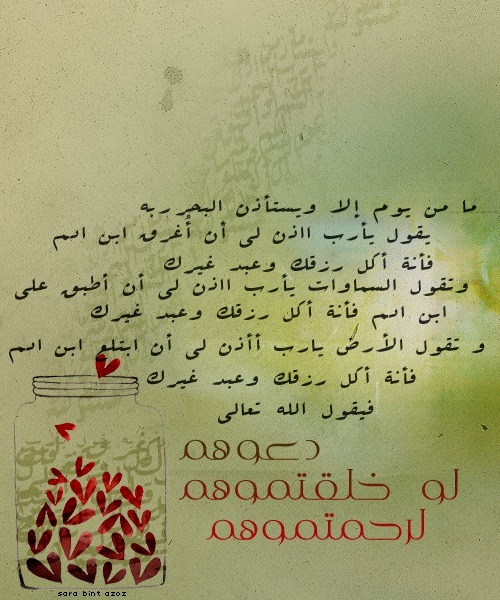 ما من يوم إلا ويستأذن البحر ربه
يقول يأرب اذن لى أن أغرق ابن ادم
فأنة أكل رزقك وعبد غيرك
وتقول السماوات يأرب اذن لى أن أطبق على
ابن ادم فأنة أكل رزقك وعبد غيرك
و تقول الأرض يارب أأذن لى أن ابتلع ابن ادم
فأنة أكل رزقك وعبد غيرك
فيقول الله تعالى
دعوهم
لو خلقتموهم
لرحمتموهم
sara bint azoz